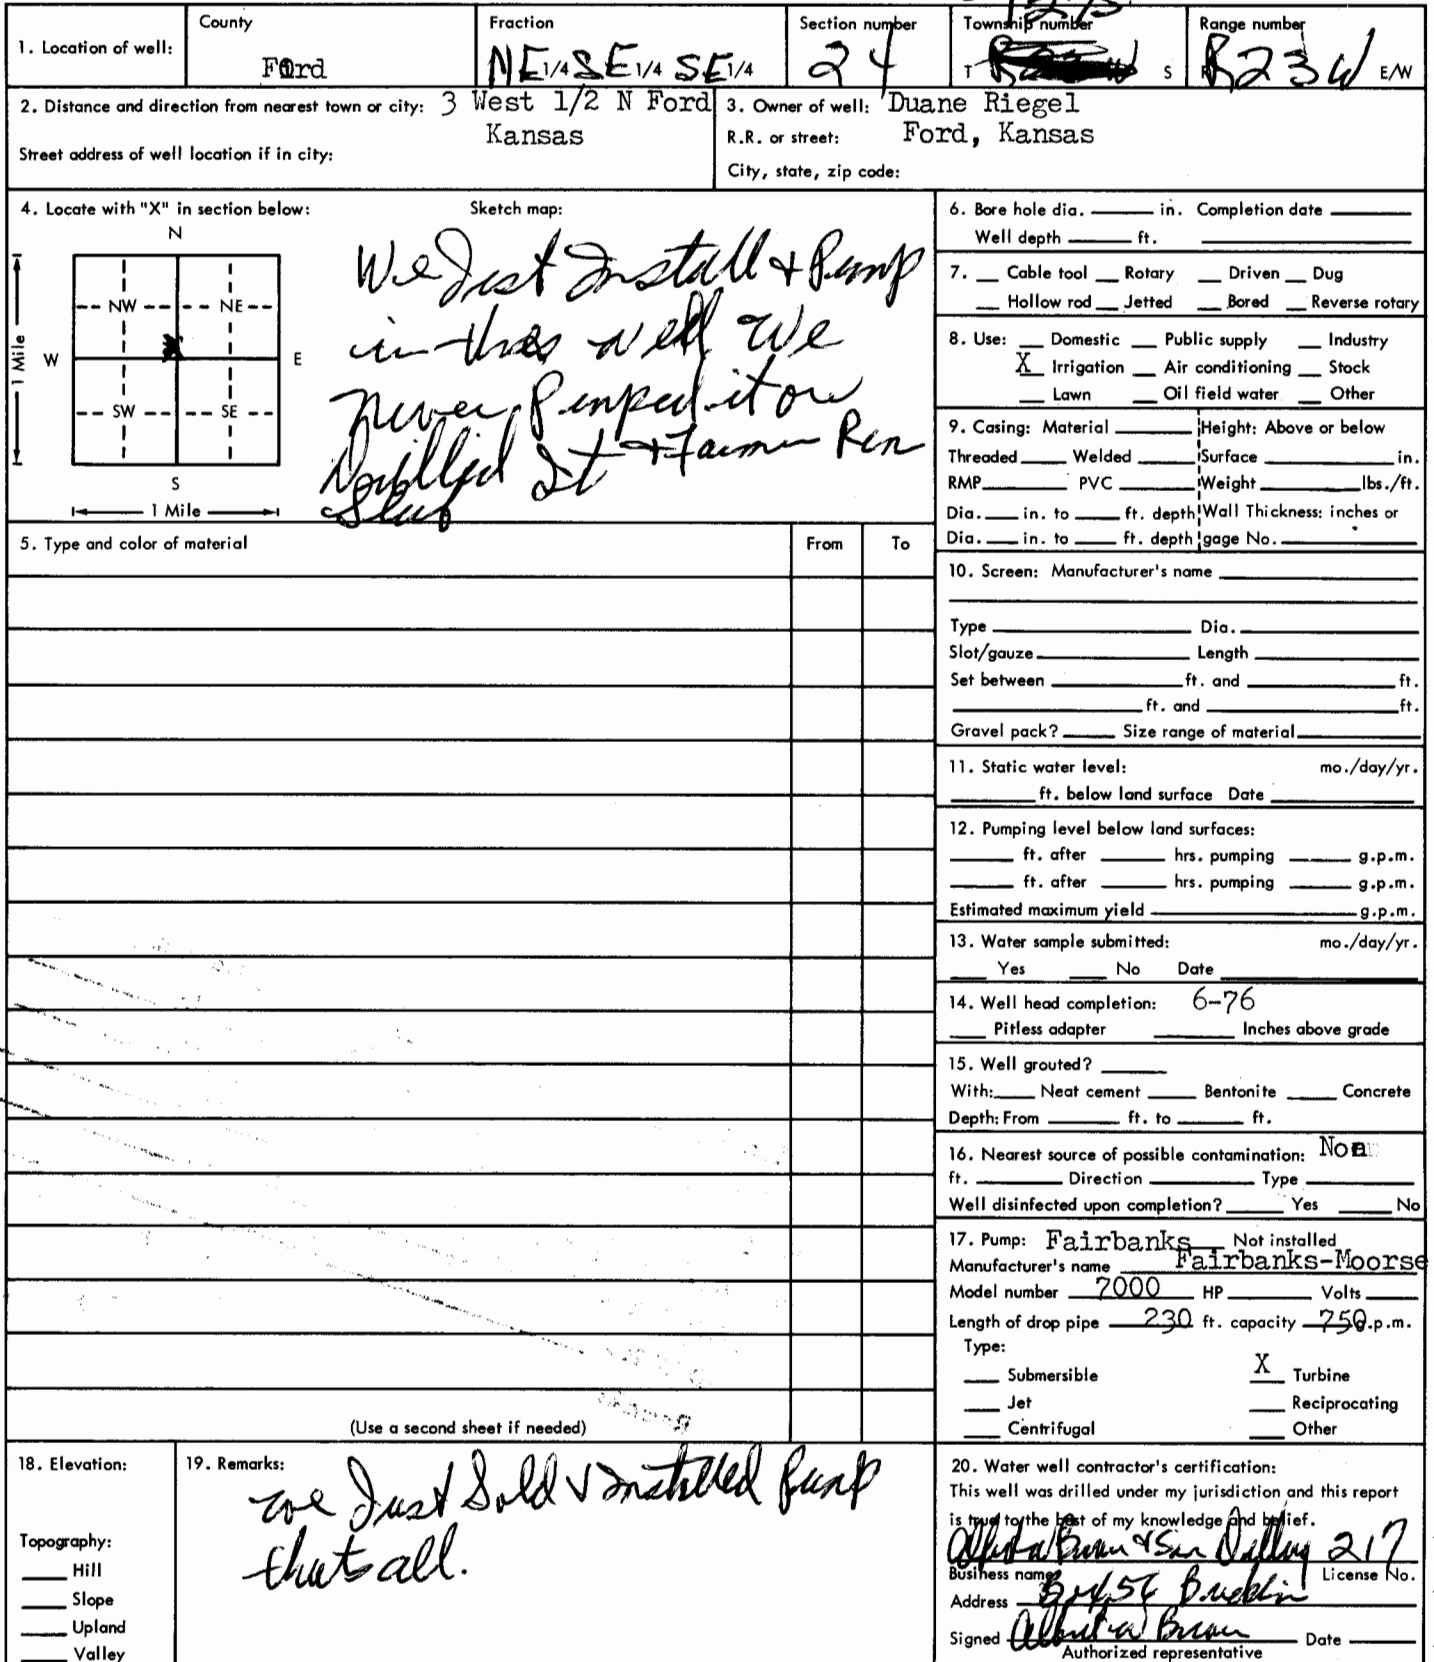 County Fraction Section number Township number Range number
1. Location of well: Ford NE 1/4 SE 1/4 SE 1/4 24 T S R23W E/W
2. Distance and direction from nearest town or city: 3 West 1/2 N Ford
Kansas
Street address of well location if in city:
3. Owner of well: Duane Riegel
R.R. or street: Ford, Kansas
City, state, zip code:
4. Locate with "X" in section below: Sketch map:
N
NW NE
W E
SW SE
S
1 Mile
1 Mile
We Just Install + Pump
in this well We
never Pumped it or
Drilled It + Farmer Ran
5. Type and color of material From To
(Use a second sheet if needed)
6. Bore hole dia. ____ in. Completion date ____
Well depth ____ ft. ____
7. __ Cable tool __ Rotary __ Driven __ Dug
__ Hollow rod __ Jetted __ Bored __ Reverse rotary
8. Use: __ Domestic __ Public supply __ Industry
X Irrigation __ Air conditioning __ Stock
__ Lawn __ Oil field water __ Other
9. Casing: Material ____ Height: Above or below
Threaded ____ Welded ____ Surface ____ in.
RMP ____ PVC ____ Weight ____ lbs./ft.
Dia. ____ in. to ____ ft. depth Wall Thickness: inches or
Dia. ____ in. to ____ ft. depth gage No. ____
10. Screen: Manufacturer's name ____
Type ____ Dia. ____
Slot/gauze ____ Length ____
Set between ____ ft. and ____ ft.
____ ft. and ____ ft.
Gravel pack? ____ Size range of material ____
11. Static water level: mo./day/yr.
____ ft. below land surface Date ____
12. Pumping level below land surfaces:
____ ft. after ____ hrs. pumping ____ g.p.m.
____ ft. after ____ hrs. pumping ____ g.p.m.
Estimated maximum yield ____ g.p.m.
13. Water sample submitted: mo./day/yr.
____ Yes ____ No Date ____
14. Well head completion: 6-76
____ Pitless adapter ____ Inches above grade
15. Well grouted? ____
With: ____ Neat cement ____ Bentonite ____ Concrete
Depth: From ____ ft. to ____ ft.
16. Nearest source of possible contamination: Non
ft. ____ Direction ____ Type ____
Well disinfected upon completion? ____ Yes ____ No
17. Pump: Fairbanks Not installed
Manufacturer's name Fairbanks-Moorse
Model number 7000 HP ____ Volts ____
Length of drop pipe 230 ft. capacity 750 g.p.m.
Type:
____ Submersible X Turbine
____ Jet ____ Reciprocating
____ Centrifugal ____ Other
18. Elevation:
Topography:
____ Hill
____ Slope
____ Upland
____ Valley
19. Remarks: We Just Sold & installed pump
thats all.
20. Water well contractor's certification:
This well was drilled under my jurisdiction and this report
is true to the best of my knowledge and belief.
& Son 217
Business name License No.
Address Box 56 Bucklin
Signed ____ Date ____
Authorized representative